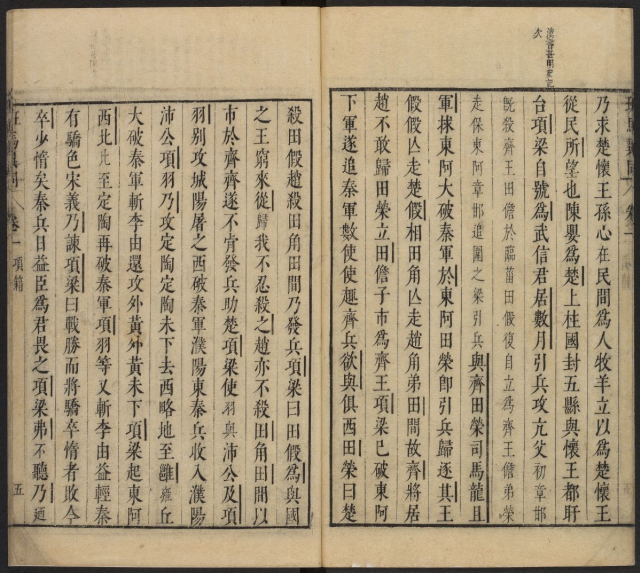 欠
乃求楚懷王孫心在民間爲人牧羊立以爲楚懷王
從民所望也陳嬰爲楚上柱國封五縣與懷王都盱
台項梁自號爲武信君居數月引兵攻亢父初章邯
既殺齊王田儋於臨菑田假復自立爲齊王儋弟榮
走保東阿章邯追圍之梁引兵與齊田榮司馬龍且
軍救東阿大破秦軍於東阿田榮即引兵歸逐其王
假假亾走楚假相田角亾走趙角弟田間故齊將居
趙不敢歸田榮立田儋子市爲齊王項梁已破東阿
下軍遂追秦軍數使使趣齊兵欲與俱西田榮曰楚
殺田假趙殺田角田間乃發兵項梁曰田假爲與國
之王窮來從歸我不忍殺之趙亦不殺田角田間以
市於齊齊遂不肯發兵助楚項梁使羽與沛公及項
羽别攻城陽屠之西破秦軍濮陽東秦兵收入濮陽
沛公項羽乃攻定陶定陶未下去西略地至雝雍丘
大破秦軍斬李由還攻外黃外黃未下項梁起東阿
西北比至定陶再破秦軍項羽等又斬李由益輕秦
有驕色宋義乃諫項梁曰戰勝而將驕卒惰者敗今
卒少惰矣秦兵日益臣爲君畏之項梁弗不聽乃迺
班馬異同 卷一 項籍 五